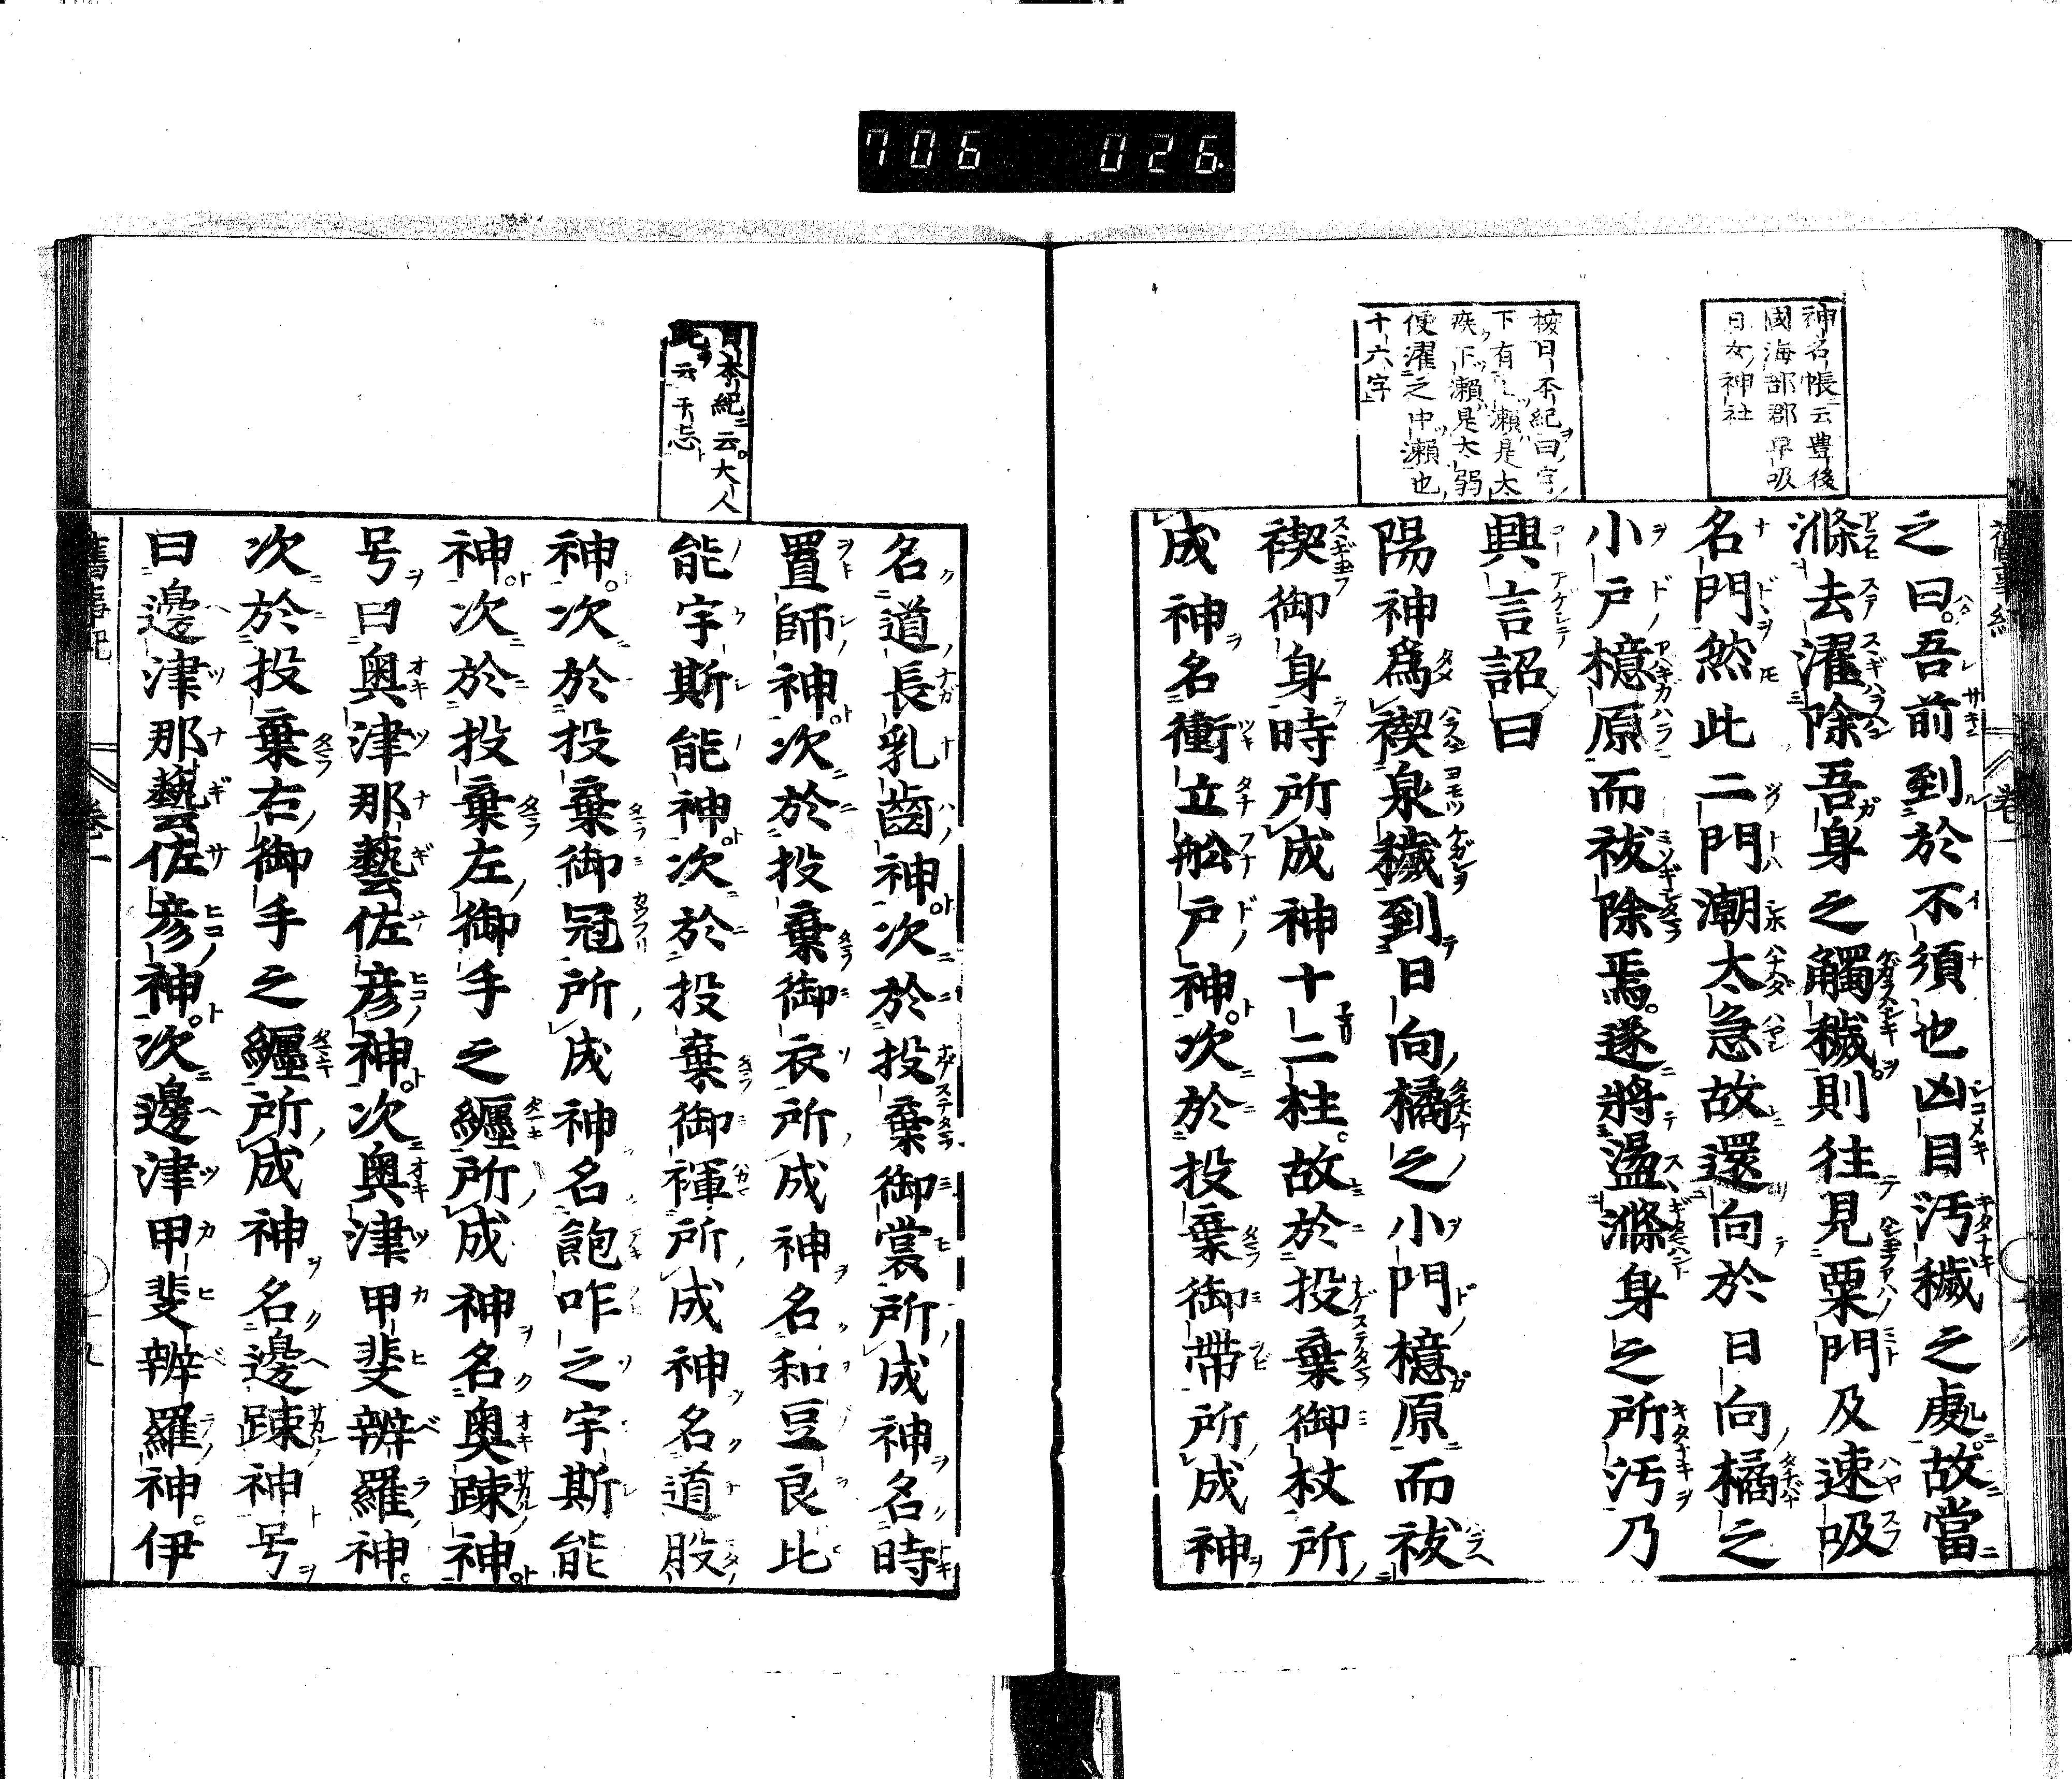 706 026
神名帳云豊後
國海部郡早吸
日女神社
按日本紀曰字
下有上瀬是太
疾下瀬是太弱
便濯之中瀬也
十六字
之曰吾前到於不須也凶目汚穢之處故當
滌去濯除吾身之觸穢則往見粟門及速吸
名門然此二門潮太急故還向於日向橘之
小戸檍原而祓除焉遂將盪滌身之所汚乃
興言詔曰
陽神爲禊泉穢到日向橘之小門檍原而祓
禊御身時所成神十二柱故於投棄御杖所
成神名衝立舩戸神次於投棄御帶所成神
日本紀云大人
此云于志
名道長乳齒神次於投棄御裳所成神名時
置師神次於投棄御衣所成神名和豆良比
能宇斯能神次於投棄御褌所成神名道股
神次於投棄御冠所成神名飽咋之宇斯能
神次於投棄左御手之纒所成神名奥踈神
号曰奥津那藝佐彦神次奥津甲斐辨羅神
次於投棄右御手之纒所成神名邊踈神号
曰邊津那藝佐彦神次邊津甲斐辨羅神伊
舊事紀 卷一